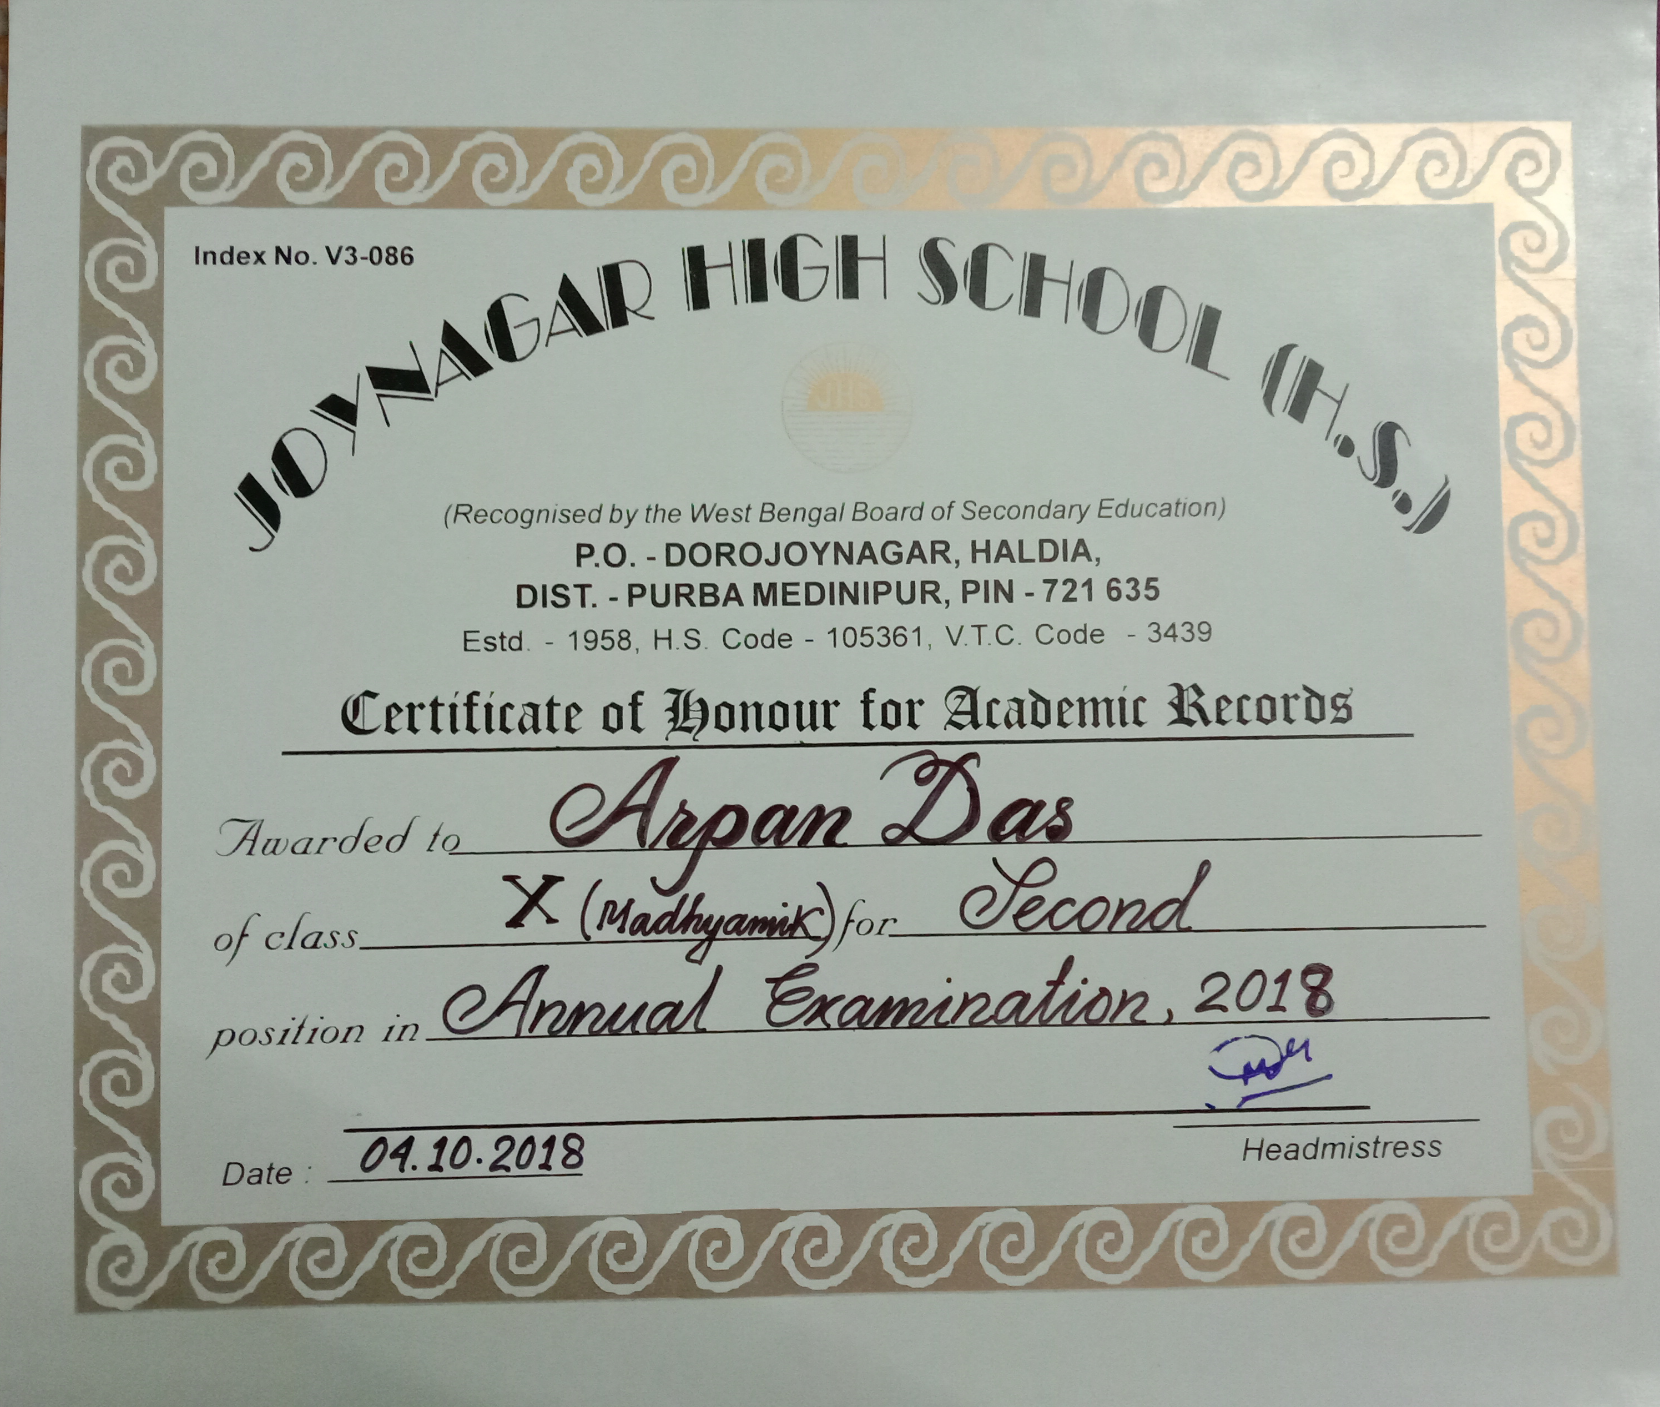 Index No. V3-086
JOYNAGAR HIGH SCHOOL (H.S.)
JHS
(Recognised by the West Bengal Board of Secondary Education)
P.O. - DOROJOYNAGAR, HALDIA,
DIST. - PURBA MEDINIPUR, PIN - 721 635
Estd. - 1958, H.S. Code - 105361, V.T.C. Code - 3439
Certificate of Honour for Academic Records
Awarded to Arpan Das
of class X (Madhyamik) for Second
position in Annual Examination, 2018
Date : 04.10.2018
Headmistress